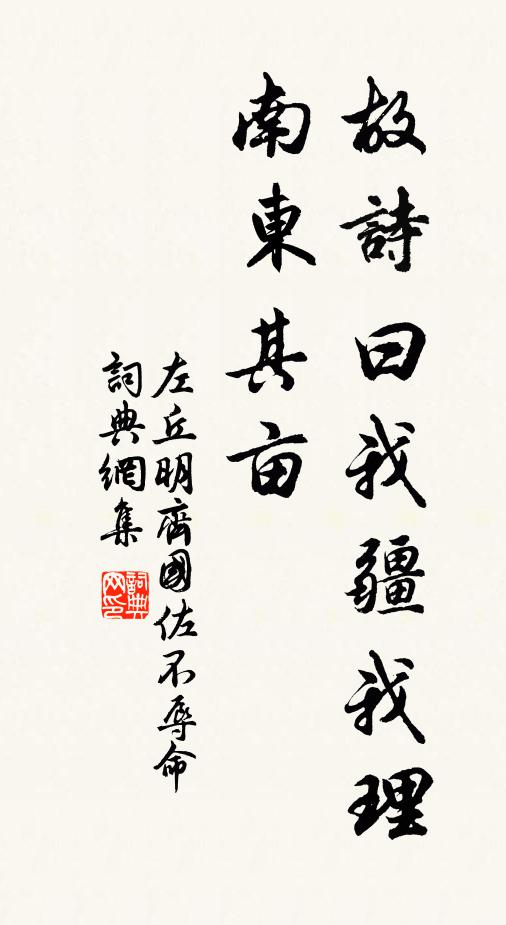 故詩曰我疆我理
南東其亩
左丘明齊國佐不辱命
詞典網集
詞典
网印